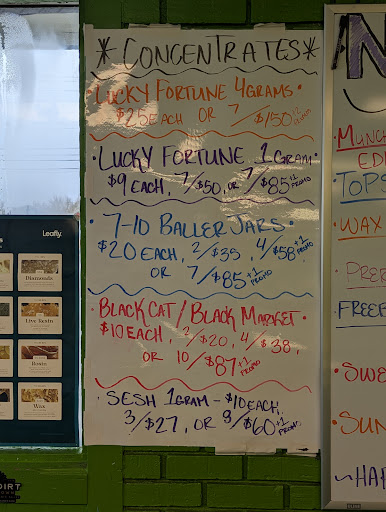 * CONCENTRATES *
LUCKY FORTUNE 4GRAMS •
$25 EACH OR 7/$150 +2 PROMO
• LUCKY FORTUNE 1GRAM •
$9 EACH, 7/$50, OR 7/$85 +1 PROMO
• 7-10 BALLER JARS. •
$20 EACH, 2/$39, 4/$58 +1 PROMO
OR 7/$85 +1 PROMO
• BLACK CAT / BLACK MARKET •
$10 EACH, 2/$20, 4/$38,
OR 10/$87 +1 PROMO
SESH 1GRAM - $10 EACH,
3/$27, OR 8/$60 +1 PROMO
Leafly.
Diamonds
Live Resin
Rosin
Wax
DIRT
MUNCH
EDI
TOPS
WAX
PRER
FREEF
SWE
SUN
~HAP